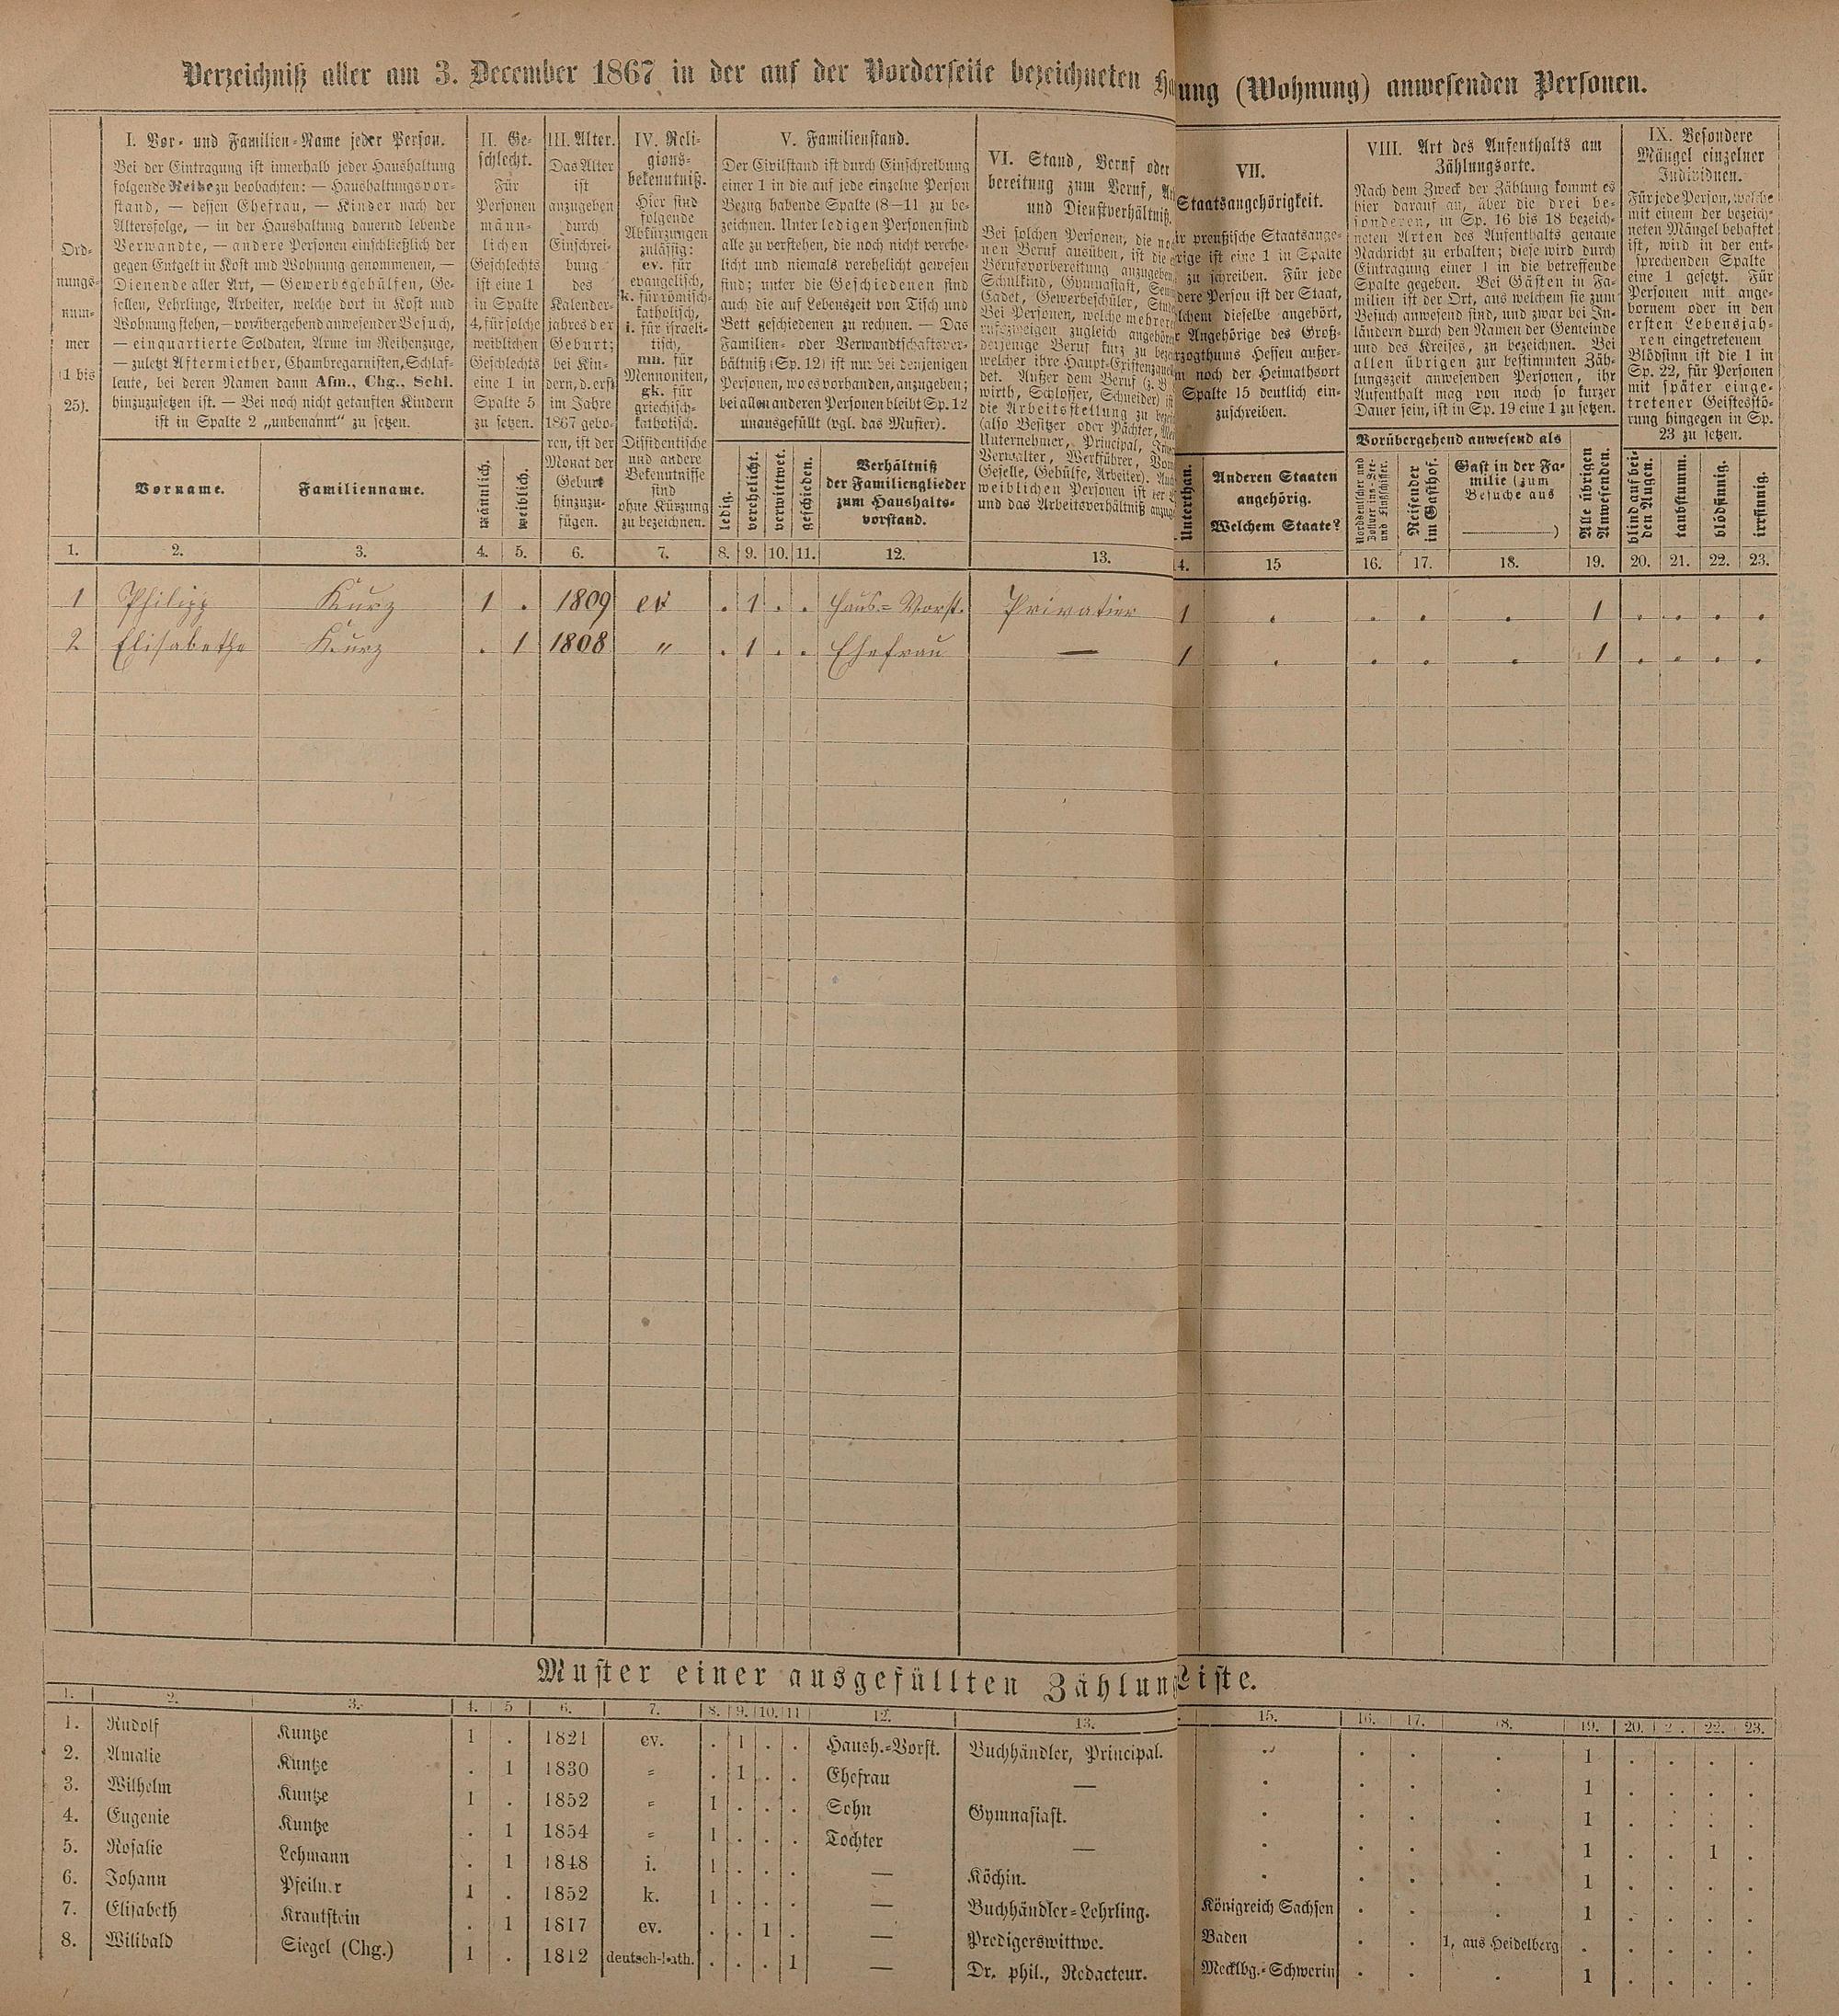 Verzeichniß aller am 3. December 1867 in der auf der Vorderseite bezeichneten ung (Wohnung) anwesenden Personen.
Ord-
nungs-
num-
mer
(1 bis
25).
I. Vor- und Familien-Name jeder Person.
Bei der Eintragung ist innerhalb jeder Haushaltung
folgende Reihe zu beobachten: — Haushaltungsvor-
stand, — dessen Ehefrau, — Kinder nach der
Altersfolge, — in der Haushaltung dauernd lebende
Verwandte, — andere Personen einschließlich der
gegen Entgelt in Kost und Wohnung genommenen, —
Dienende aller Art, — Gewerbsgehülfen, Ge-
sellen, Lehrlinge, Arbeiter, welche dort in Kost und
Wohnung stehen, — vorübergehend anwesender Besuch,
— einquartierte Soldaten, Arme im Reihenzuge,
— zuletzt Aftermiether, Chambregarnisten, Schlaf-
leute, bei deren Namen dann Afm., Chg., Schl.
hinzuzusetzen ist. — Bei noch nicht getauften Kindern
ist in Spalte 2 „unbenannt“ zu setzen.
Vorname.
Familienname.
II. Ge-
schlecht.
Für
Personen
männ-
lichen
Geschlechts
ist eine 1
in Spalte
4, für solche
weiblichen
Geschlechts
eine 1 in
Spalte 5
zu setzen.
männlich.
weiblich.
III. Alter.
Das Alter
ist
anzugeben
durch
Einschrei-
bung
des
Kalender-
jahres der
Geburt;
bei Kin-
dern, d. erst
im Jahre
1867 gebo-
ren, ist der
Monat der
Geburt
hinzuzu-
fügen.
IV. Reli-
gions-
bekenntniß.
Hier sind
folgende
Abkürzungen
zulässig:
ev. für
evangelisch,
k. für römisch-
katholisch,
i. für israeli-
tisch,
mn. für
Mennoniten,
gk. für
griechisch-
katholisch.
Dissidentische
und andere
Bekenntnisse
sind
ohne Kürzung
zu bezeichnen.
V. Familienstand.
Der Civilstand ist durch Einschreibung
einer 1 in die auf jede einzelne Person
Bezug habende Spalte (8—11 zu be-
zeichnen. Unter ledigen Personen sind
alle zu verstehen, die noch nicht verehe-
licht und niemals verehelicht gewesen
sind; unter die Geschiedenen sind
auch die auf Lebenszeit von Tisch und
Bett geschiedenen zu rechnen. — Das
Familien- oder Verwandtschaftsver-
hältniß (Sp. 12) ist nur bei denjenigen
Personen, wo es vorhanden, anzugeben;
bei allen anderen Personen bleibt Sp. 12
unausgefüllt (vgl. das Muster).
ledig.
verehelicht.
verwittwet.
geschieden.
Verhältniß
der Familienglieder
zum Haushalts-
vorstand.
VI. Stand, Beruf oder
bereitung zum Beruf,
und Dienstverhältniß.
Bei solchen Personen, die
nen Beruf ausüben, ist die
Berufsvorbereitung anzugeben
Schulkind, Gymnasiast,
Cadet, Gewerbeschüler,
Bei Personen, welche mehreren
rufszweigen zugleich angehören
derjenige Beruf kurz zu
welcher ihre Haupt-Existenzquelle
det. Außer dem Beruf (z. B
wirth, Schlosser, Schneider) ist
die Arbeitsstellung zu
(also Besitzer oder Pächter,
Unternehmer, Principal,
Verwalter, Werkführer,
Geselle, Gehülfe, Arbeiter).
weiblichen Personen ist
und das Arbeitsverhältniß
VII.
Staatsangehörigkeit.
preußische Staatsange-
rige ist eine 1 in Spalte
zu schreiben. Für jede
dere Person ist der Staat,
lchem dieselbe angehört,
Angehörige des Groß-
rzogthums Hessen außer-
noch der Heimathsort
Spalte 15 deutlich ein-
zuschreiben.
Unterthan.
Anderen Staaten
angehörig.
Welchem Staate?
VIII. Art des Aufenthalts am
Zählungsorte.
Nach dem Zweck der Zählung kommt es
hier darauf an, über die drei be-
sonderen, in Sp. 16 bis 18 bezeich-
neten Arten des Aufenthalts genaue
Nachricht zu erhalten; diese wird durch
Eintragung einer 1 in die betreffende
Spalte gegeben. Bei Gästen in Fa-
milien ist der Ort, aus welchem sie zum
Besuch anwesend sind, und zwar bei In-
ländern durch den Namen der Gemeinde
und des Kreises, zu bezeichnen. Bei
allen übrigen zur bestimmten Zäh-
lungszeit anwesenden Personen, ihr
Aufenthalt mag von noch so kurzer
Dauer sein, ist in Sp. 19 eine 1 zu setzen.
Vorübergehend anwesend als
Norddeutscher und
Zollver.ins-See-
und Flußschiffer.
Reisender
im Gasthof.
Gast in der Fa-
milie (zum
Besuche aus
)
Alle übrigen
Anwesenden.
IX. Besondere
Mängel einzelner
Individuen.
Für jede Person, welche
mit einem der bezeich-
neten Mängel behaftet
ist, wird in der ent-
sprechenden Spalte
eine 1 gesetzt. Für
Personen mit ange-
bornem oder in den
ersten Lebensjah-
ren eingetretenem
Blödsinn ist die 1 in
Sp. 22, für Personen
mit später einge-
tretener Geistesstö-
rung hingegen in Sp.
23 zu setzen.
blind auf bei-
den Augen.
taubstumm.
blödsinnig.
irrsinnig.
1. 2. 3. 4. 5. 6. 7. 8. 9. 10. 11. 12. 13. 4. 15 16. 17. 18. 19. 20. 21. 22. 23.
1 Philipp Kurz 1 . 1809 ev . 1 . . Haus.= Vorst. Privatier 1 . . . . 1 . . . .
2 Elisabethe Kurz . 1 1808 „ . 1 . . Ehefrau — 1 . . . . 1 . . . .
Muster einer ausgefüllten Zählungliste.
1. 2. 3. 4. 5 6. 7. 8. 9. 10. 11 12. 13. 15. 16. 17. 18. 19. 20. 2 . 22. 23.
1. Rudolf Kuntze 1 . 1821 ev. . 1 . . Haush.=Vorst. Buchhändler, Principal. . . . . 1 . . . .
2. Amalie Kuntze . 1 1830 = . 1 . . Ehefrau — . . . . 1 . . . .
3. Wilhelm Kuntze 1 . 1852 = 1 . . . Sohn Gymnasiast. . . . . 1 . . . .
4. Eugenie Kuntze . 1 1854 = 1 . . . Tochter — . . . . 1 . . 1 .
5. Rosalie Lehmann . 1 1848 i. 1 . . . — Köchin. . . . . 1 . . . .
6. Johann Pfeilner 1 . 1852 k. 1 . . . — Buchhändler=Lehrling. Königreich Sachsen . . . 1 . . . .
7. Elisabeth Krautstein . 1 1817 ev. . . 1 . — Predigerswittwe. Baden . . 1, aus Heidelberg . . . . .
8. Wilibald Siegel (Chg.) 1 . 1812 deutsch-kath. . . . 1 — Dr. phil., Redacteur. Mecklbg.=Schwerin . . . 1 . . . .